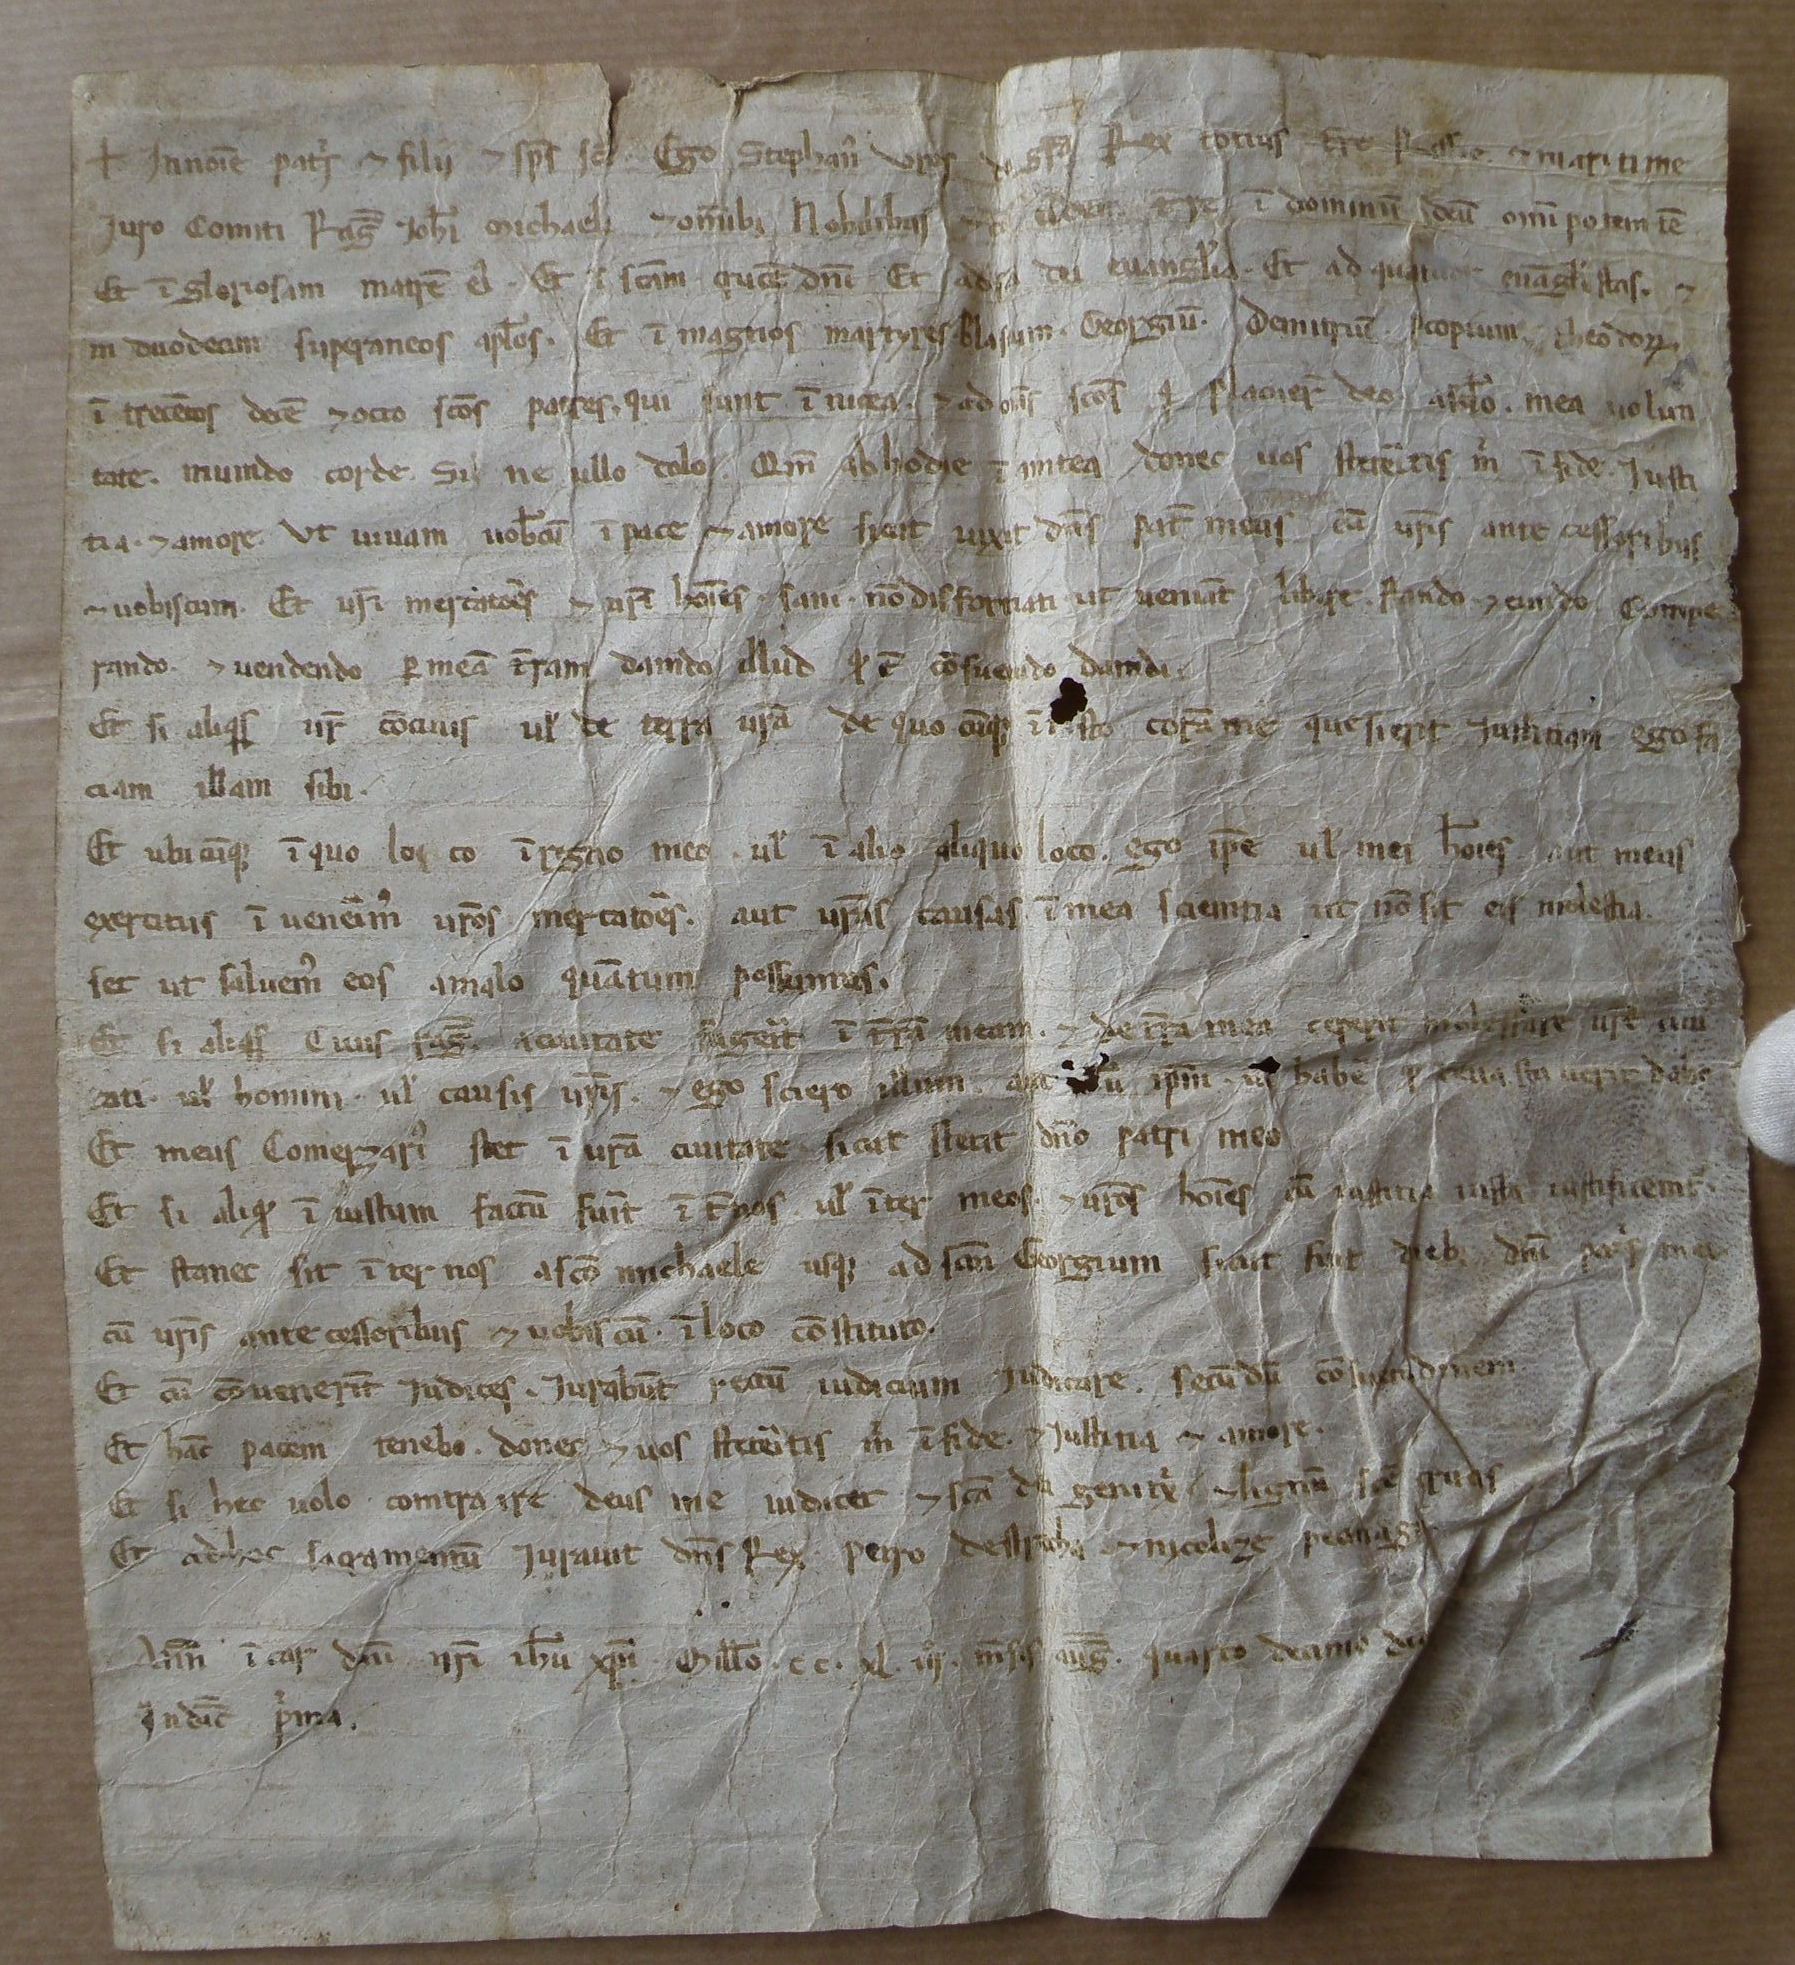 + Jnnoie pat͛s ⁊ filii ⁊ sps̄ sc̄i. Ego Stephan᷒ Vros dei gr̄a Rex totius tr̄e Rassie ⁊ maritime
Juro Comiti Raḡ Joh̄i michaeli ⁊ om̄ibꝰ Nobilibus ī dominū deū omnipotentē
Et ī gloriosam matrē eī. Et ī sc̄am crucē dn̄i Et ad sc̄a dei euangl̓ia. Et ad quatuor euāgl̓istas. ⁊
in duodecim supraneos apl̓os. Et ī magnos martyres blasium. Georgiū. Demitriū. pcopium. theodoꝝ.
ī trecētos decē ⁊ octo sc̄os patres, qui sunt ī nicea. ⁊ ad om̄s sc̄os q̄ placuer̄ deo a sclo. mea uolun
tate. mundo corde. Si ne ullo dolo. Qm̄ ab hodie ī antea donec uos steteritis m̓ ī fide. Justi
tia. ⁊ amore. Vt uiuam uob̄cū ī pace ⁊ amore sicut uixit dn̄s pat̄ meus cū ur̄is ante cessoribus
⁊ uobiscum. Et ur̄i mercatoēs ⁊ ur̄i hoīes. sani. nō disforciati. ut ueniāt libere. stando. ⁊ eundo. Compe
rando. ⁊ uendendo ꝑ meā tr̄ram dando illud qđ ē cōsuendo dandi.
Et si aliqͥs ur̄ cōciuis ul̓ de terra ur̄a de quo cūqꝫ corā me quesierit Justiciam ego fa
ciam illam sibi.
Et ubi cūqꝫ ī quo lo co ī regno meo. ul̓ ī alio aliquo loco. ego ip̄e ul̓ mei hoīes. aut meus
exercitus ī ueneim᷒ ur̄os mercatoēs. aut ur̄as causas. ī mea scientia ut nō sit eis molestia.
set ut saluem᷒ eos amalo quātum possumus.
Et si aliqͥs Ciuis raḡ. a ciuitate fugerit ī tr̄rā meam. ⁊ de tr̄ra mea ceperit molestare ur̄e ciui
tati. ul̓ homini. ul̓ causis ur̄is. ⁊ ego sciero illum. aut ip̄m. ul̓ habē
Et meus Comerzari᷒ stet ī ur̄a ciuitate. sicut stetit dn̄o patri meo
Et si aliqđ ī iustum factū fuīt ī t̄ nos ul̓ īter meos. ⁊ ur̄os hoīes cū iustitia iusta iustificem᷒.
Et stanec sit ī ter nos a scō michaele usqꝫ ad sc̄m Georgium sicut fuit diebꝰ dn̄i pat͛s mei
cū ur̄is ante cessoribus ⁊ uobis cū. ī loco cōstituto.
Et cū cōuenerīt Judices. Jurabūt rectū iudicium Judicare. secūdū cōsuetudinem
Et hāc pacem tenebo. donec ⁊ uos steteritis m̓ ī fide. ⁊ Justitia ⁊ amore.
Et si hec uolo contra ire deus me iudicet ⁊ sc̄a dī genitx̓ ⁊ lignū sc̄e crucis
Et ad hec sacramentū Jurauit dn̄s Rex. petro ⁊ nycolize
Ānn ī car dn̄i nr̄i ih̄u xp̄i. Mill̓o. cc. xl. iij. m̄sis auḡ. quarto decimo die
Jndic̄ p̓ma.